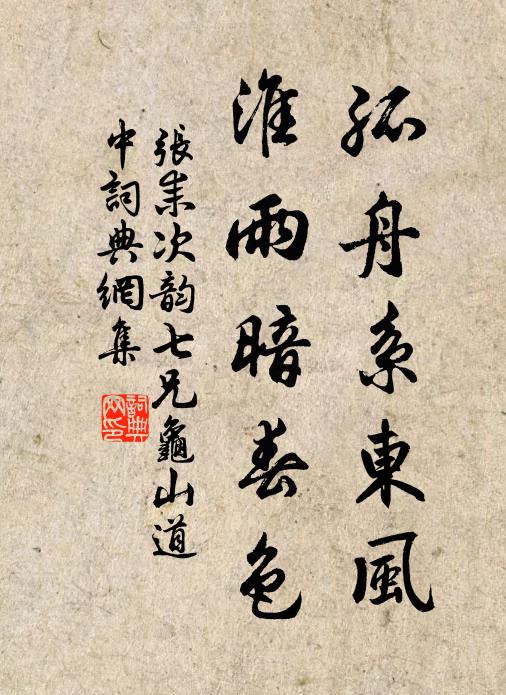 孤舟系東風
淮雨暗春色
張耒次韵七兄龜山道
中詞典網集